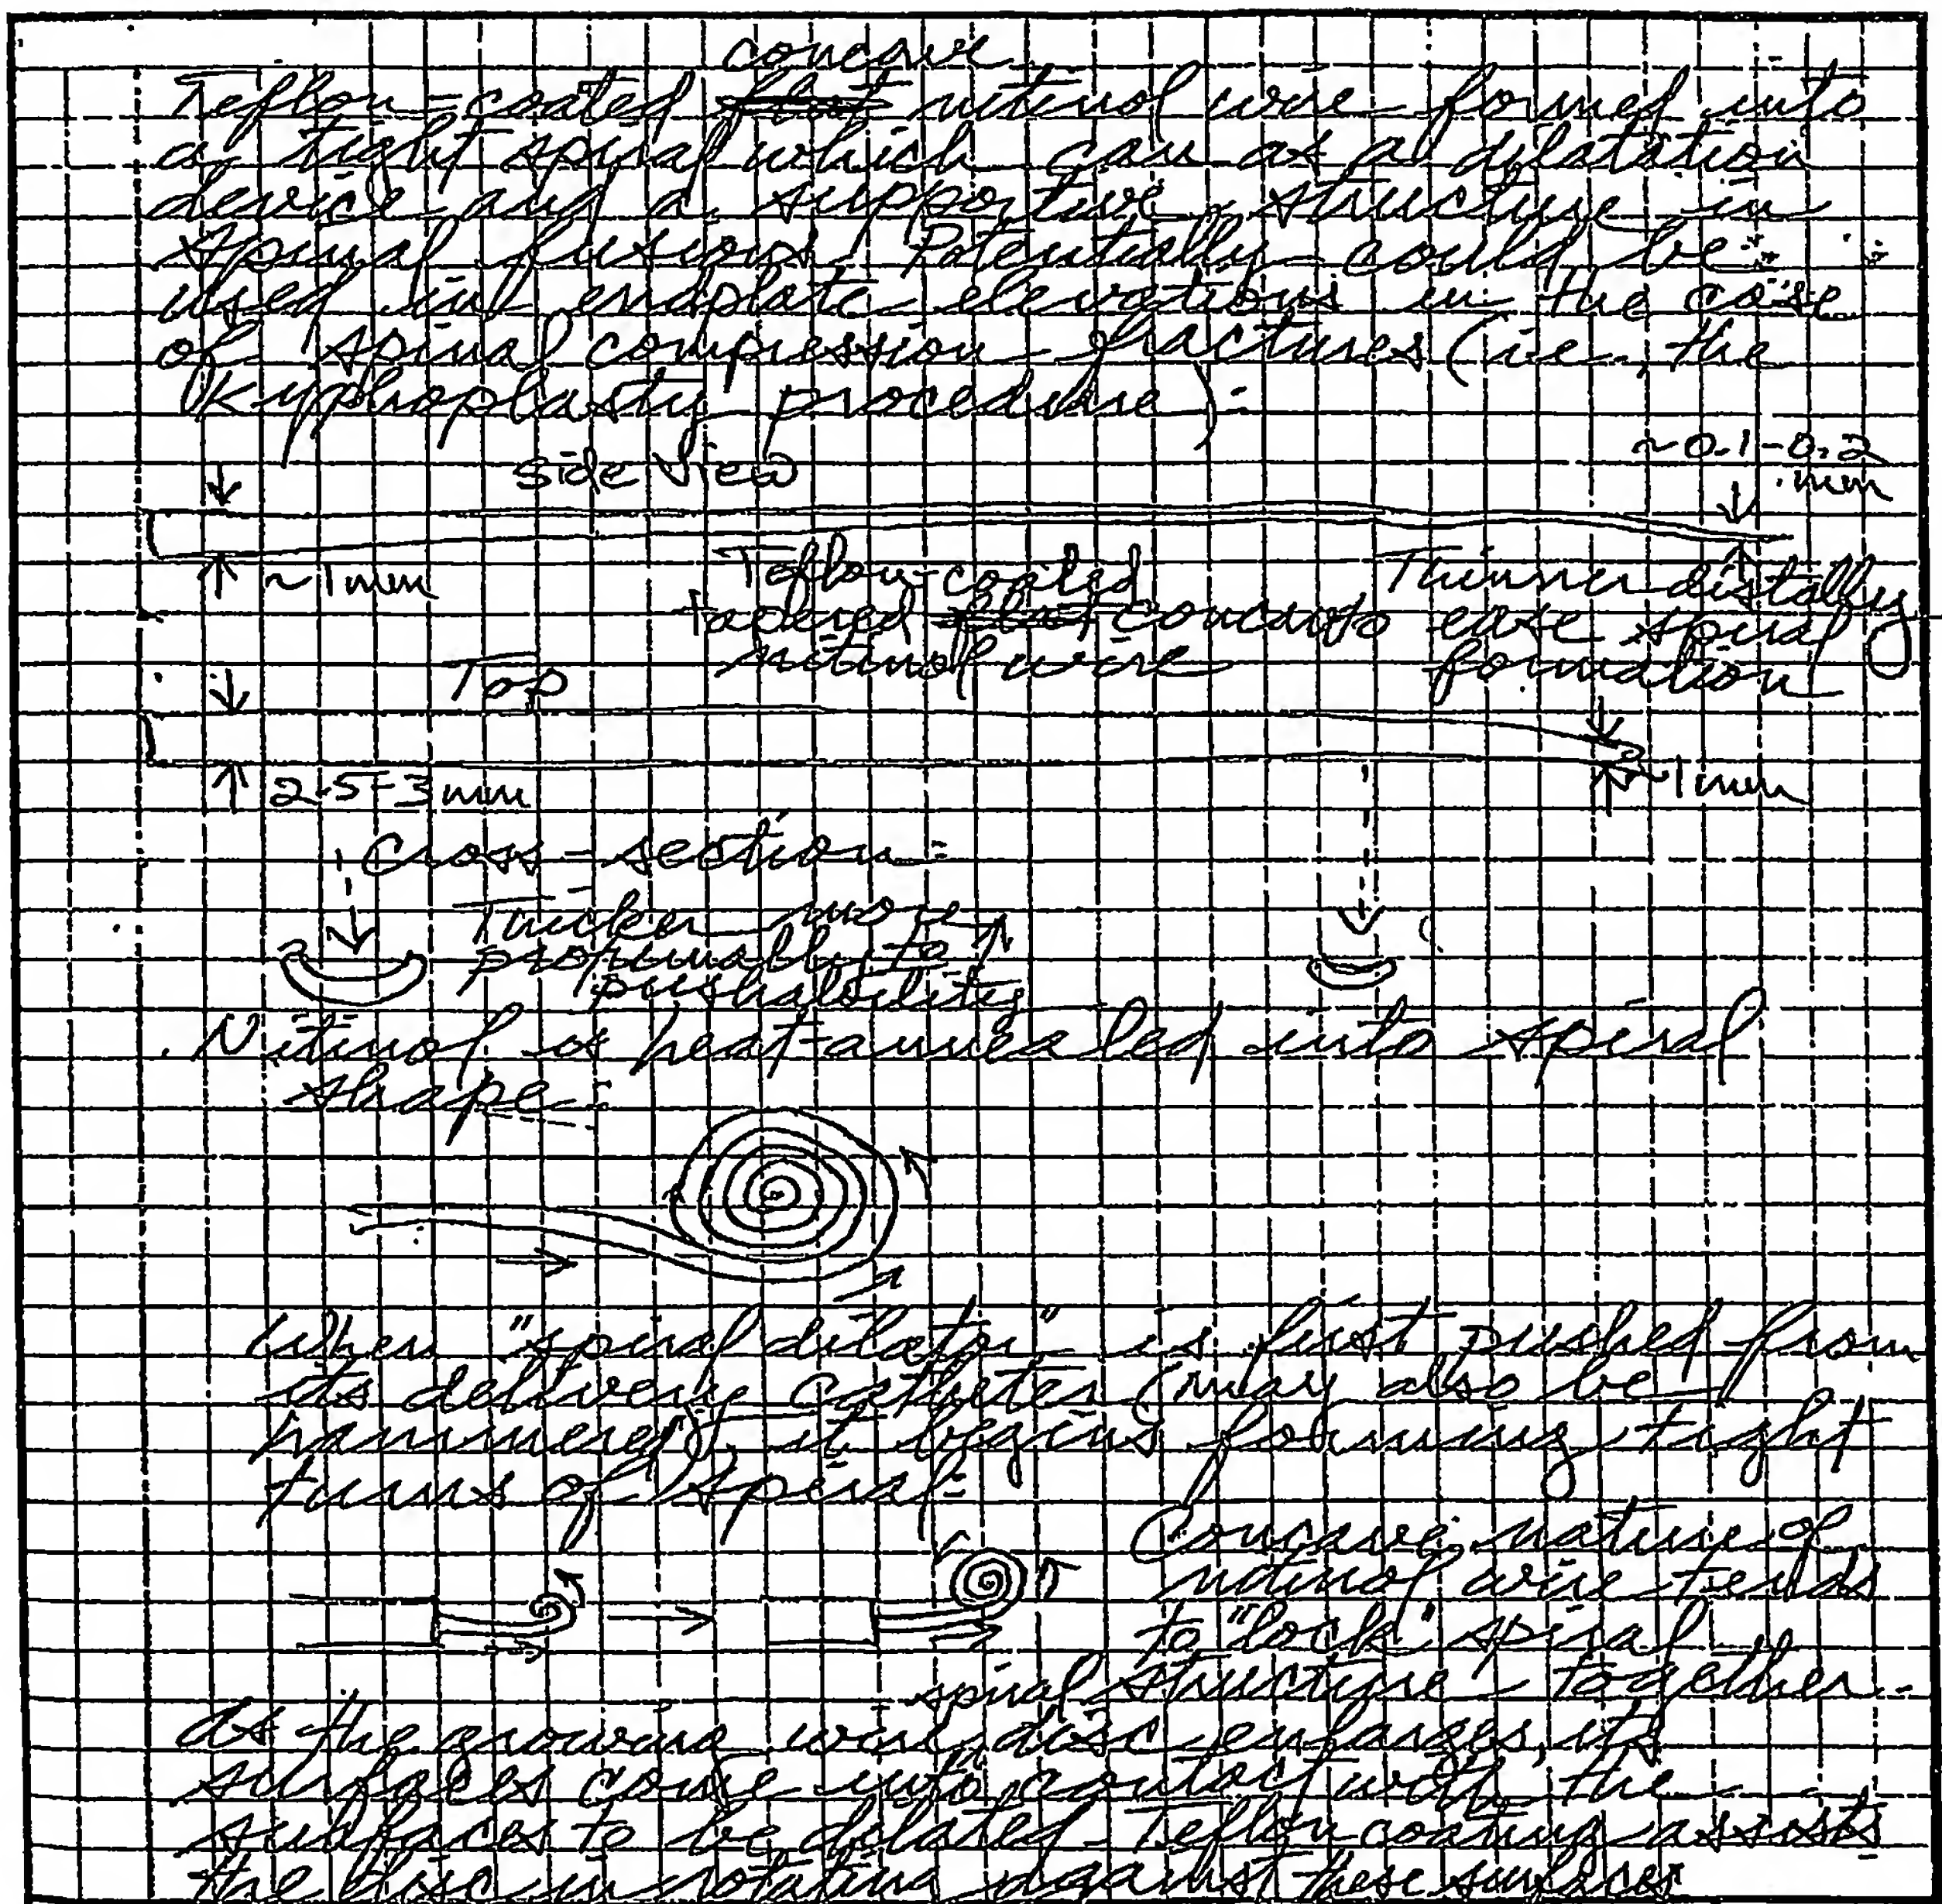 concave
Teflon-coated flat nitinol wire formed into
a tight spiral which can as a dilatation
device and a supportive structure in
spinal fusions. Potentially could be
used in endplate elevations in the case
of spinal compression fractures (ie, the
Kyphoplasty procedure):
~0.1-0.2
mm
side view
~1mm
Teflon-coated
tapered flat concave
nitinol wire
Thinner distally
to ease spiral
formation
Top
2.5-3mm
~1mm
Cross-section:
Thicker more
proximally to ↑
pushability
Nitinol is heat-annealed into spiral
shape:
When "spiral dilator" is first pushed from
its delivery catheter (may also be
hammered), it begins forming tight
turns of spiral:
Concave nature of
nitinol wire tends
to "lock" spiral
structure together.
spiral
As the growing wire disc enlarges, its
surfaces come into contact with the
surfaces to be dilated. Teflon coating assists
the disc in rotating against these surfaces